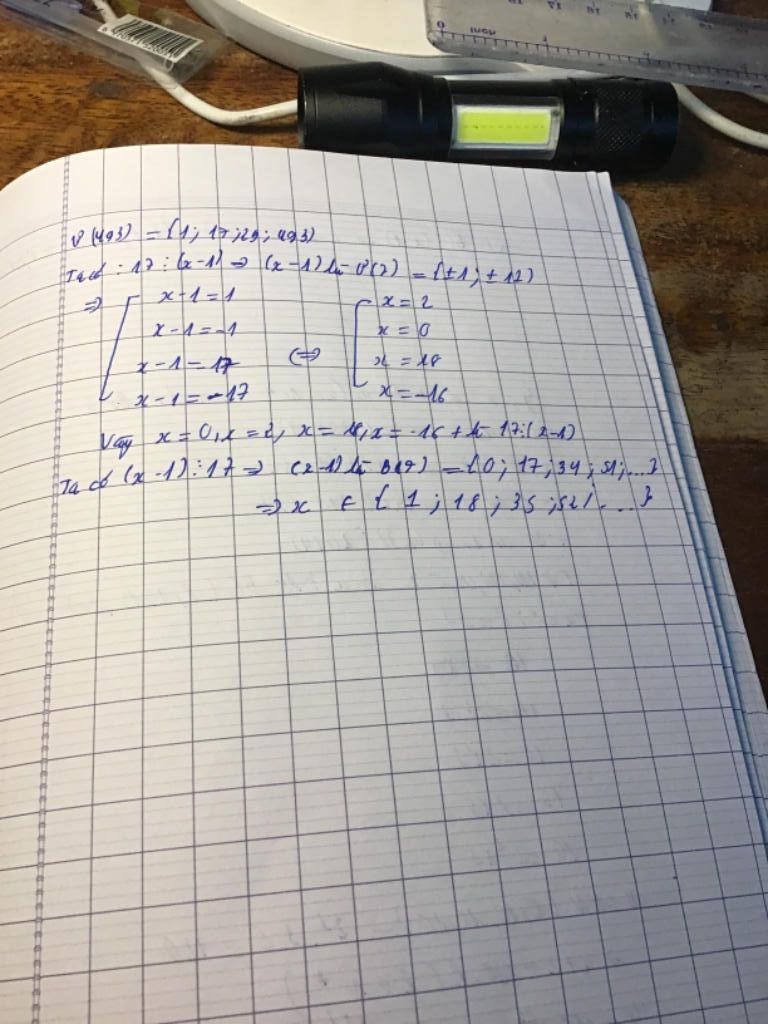 inch
Ư(493) = {1; 17; 29; 493}
Ta có : 17 ⋮ (x-1) ⇒ (x-1) là Ư(7) = {±1; ±17}
⇒ [ x-1=1
x-1=-1
x-1=17
x-1=-17
⇔ [ x=2
x=0
x=18
x=-16
Vậy x=0, x=2, x=18, x=-16 + là 17⋮(x-1)
Ta có (x-1)⋮17 ⇒ (x-1) là = {0; 17; 34; 51; ...}
⇒ x ∈ { 1; 18; 35; 52; ... }